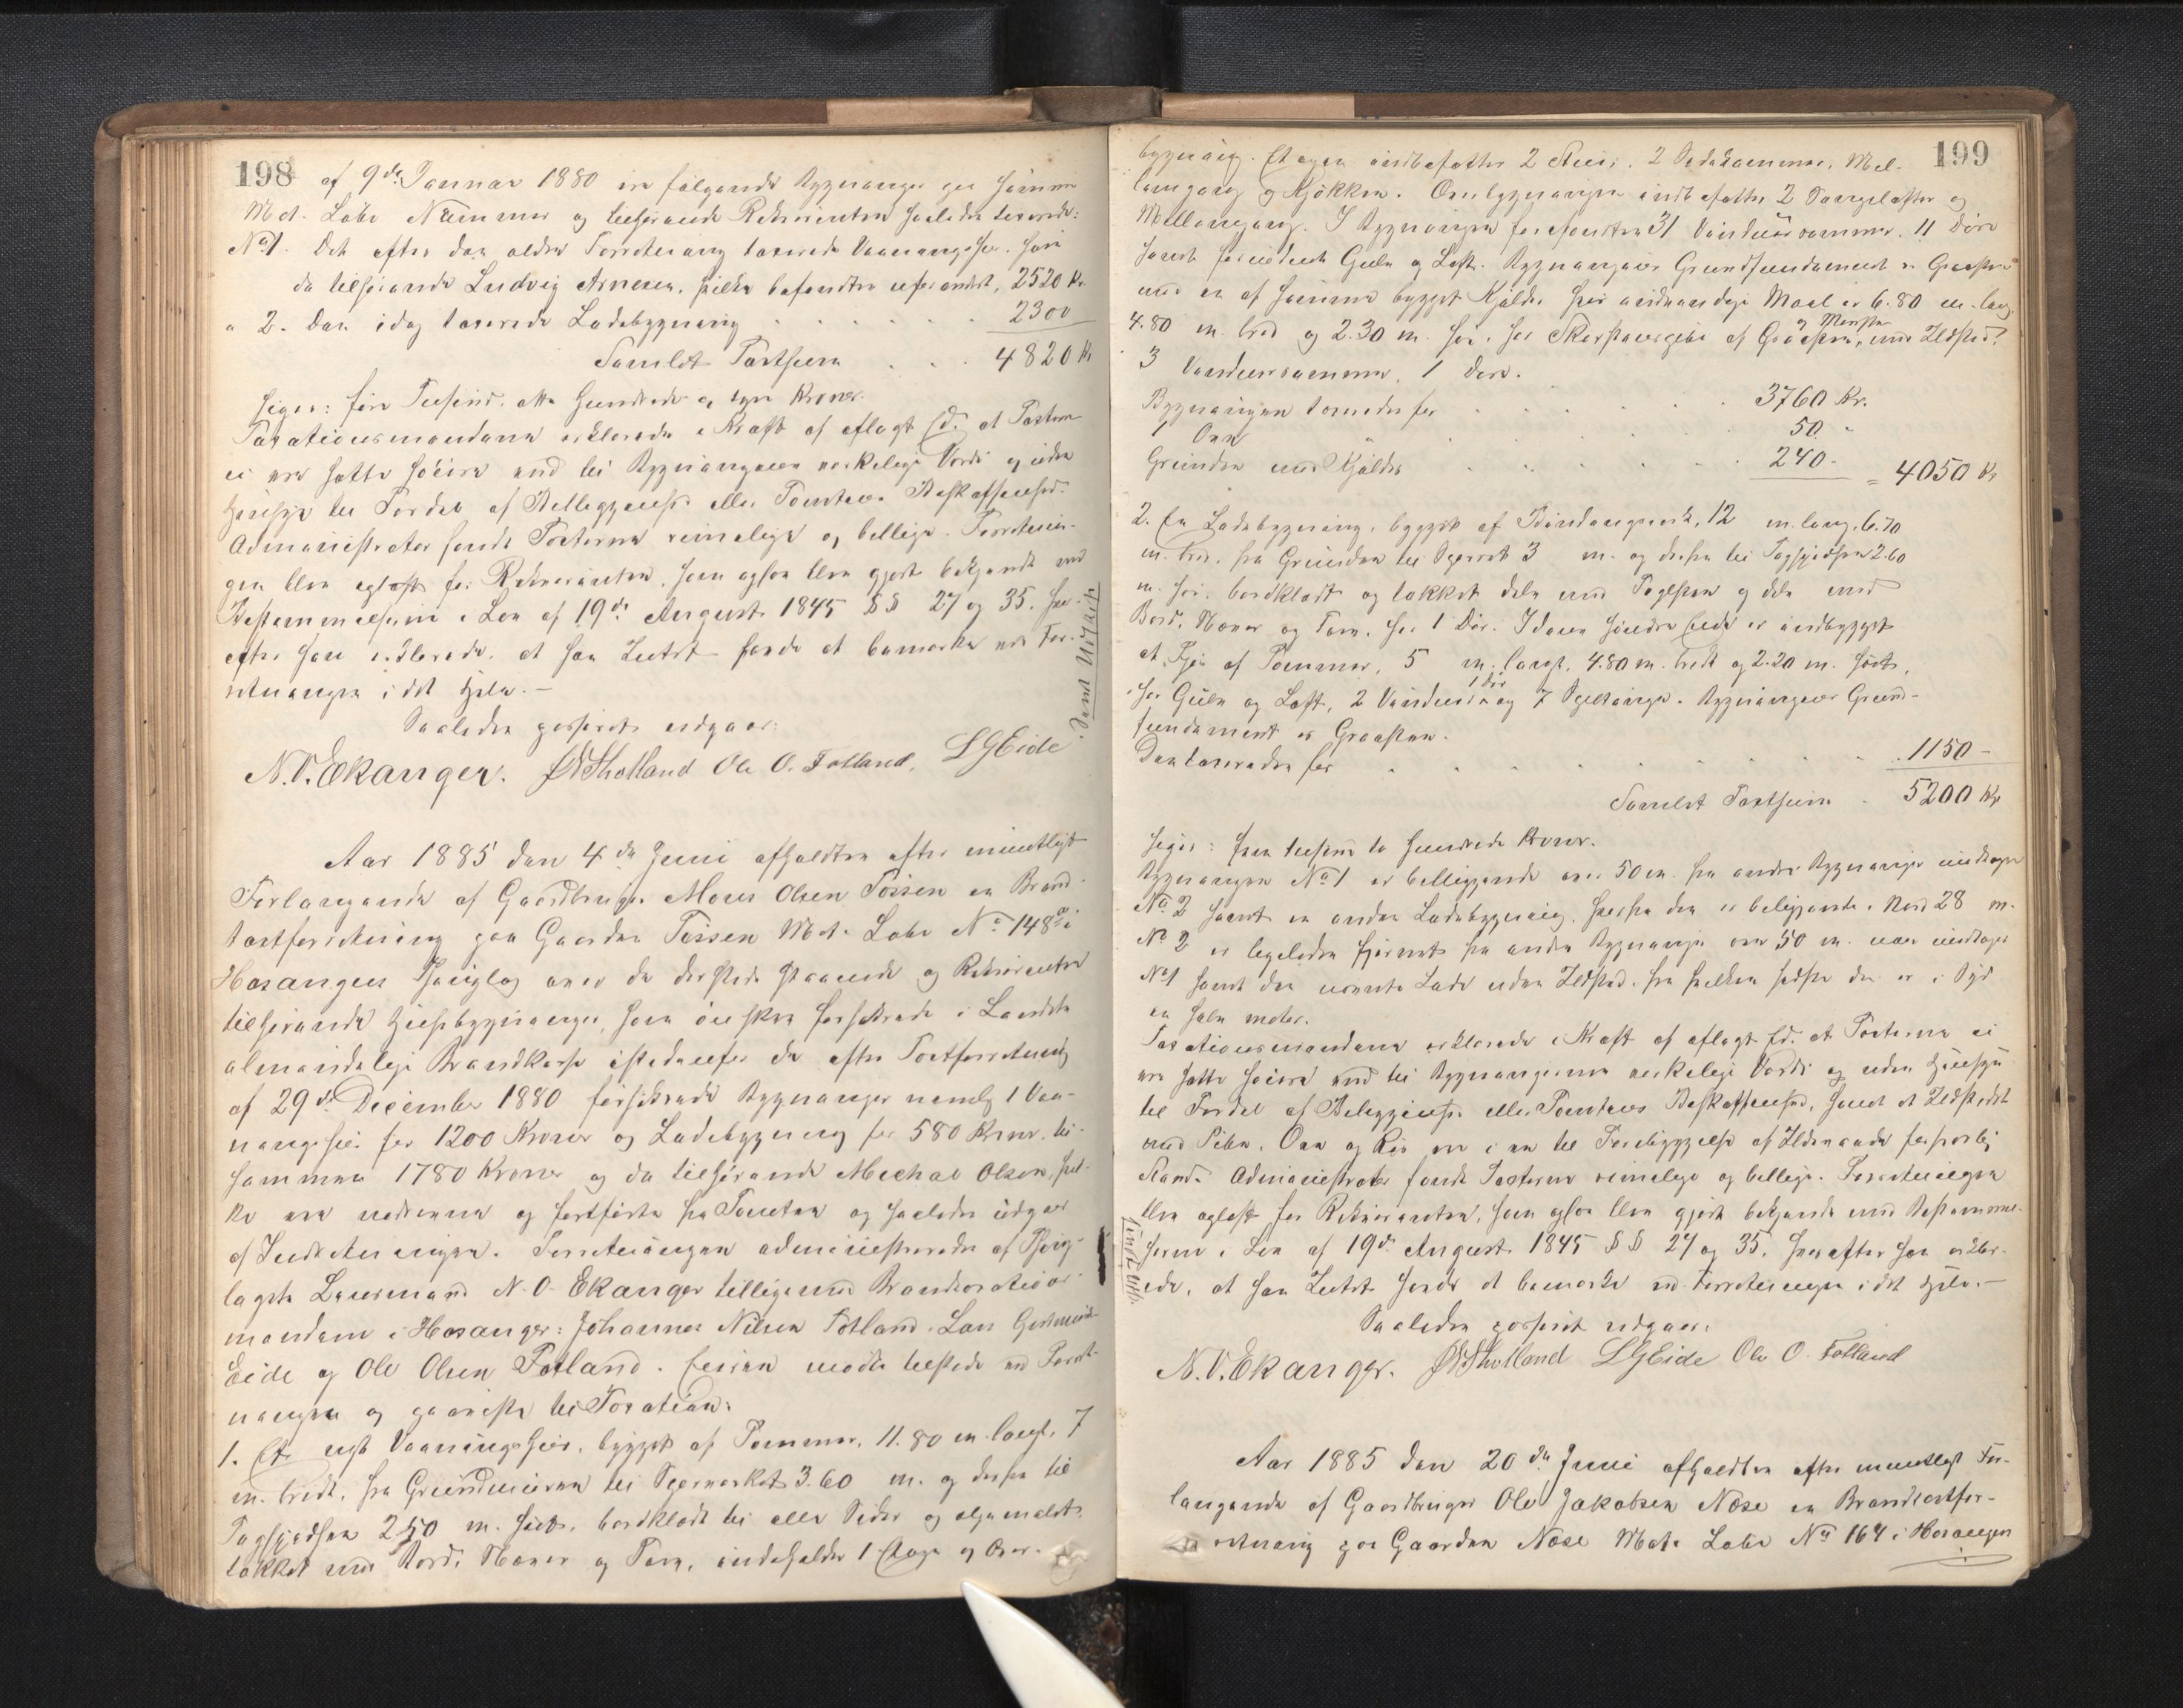 198
af 9de Januar 1880 ere følgende Bygninger paa samme
Mat. Løbe Nummer og tilhørende Rekvirenten saaledes taxerede:
No 1. Det efter den ældre Forretning taxerede Vaaningshus, som
da tilhørende Ludvig Arnesen, hvilke befandtes uforandret, 2520 Kr.
" 2. Den idag taxerede Ladebygning 2300
Samlet Taxtsum 4820 Kr
siger: fire Tusind, otte Hundrede og tyve Kroner.
Taxationsmændene erklærede i Kraft af aflagt Ed, at Taxterne
ei ere satte høiere end til Bygningernes virkelige Værdi og uden
Hensyn til Fordel af Beliggenhed eller Tomtens Beskaffenhed.
Administrator fandt Taxterne rimelige og billige. Forretnin-
gen blev oplæst for Rekvirenten, som ogsaa blev gjort bekjendt med
Bestemmelserne i Lov af 19de August 1845 §§ 27 og 35, hvor-
efter han erklærede, at han Intet havde at bemærke ved For-
retningen i det Hele.-
Saaledes passeret udgaar:
N. O. Ekanger. JNFotland Ole O. Fotland, LGEide
Sendt Udskr
Aar 1885 den 4de Juni afholdtes efter mundtligt
Forlangende af Gaardbruger Mons Olsen Tossen en Brand-
taxtforretning paa Gaarden Tossen Mat. Løbe No 148a i
Hosanger Thinglag over de dersteds staaende og Rekvirenten
tilhørende Husebygninger, som ønskes forsikrede i Landets
almindelige Brandkasse istedenfor de efter Taxtforretning
af 29de December 1880 forsikrede Bygninger nemlig 1 Vaa-
ningshus for 1200 Kroner og Ladebygning for 580 Kroner, til-
sammen 1780 Kroner og da tilhørende Michal Olsen, hvil-
ke ere nedrevne og fortførte fra Tomten og saaledes udgaar
af Indretningen. Forretningen administreredes af Thing-
lagets Lensmand N. O. Ekanger tilligemed Brandtaxations-
mændene i Hosanger: Johannes Nilsen Fotland, Lars Gertmund-
Eide og Ole Olsen Fotland. Eieren mødte tilstede ved Forret-
ningen og paaviste til Taxation:
1. Et nyt Vaaningshus, bygget af Tømmer, 11.80 m. langt, 7
m. bredt, fra Grundmuren til Sperreskot 3.60 m. og derfra til
Tagspidsen 2.50 m. høit, bordklædt til alle Sider og oljemalet,
tækket med Bord, Næver og Torv, indeholder 1 Etage og Over-
199
bygning. Etagen indbefatter 2 Stuer, 2 Sidekammere, Mel-
lemgang og Kjøkken. Overbygningen indbefatter 2 Sengelofter og
Mellemgang. I Bygningen forefindtes 31 Vinduesrammer, 11 Døre
samt fornødent Gulv og Loft. Bygningens Grundfundament er Graasten
med en af samme bygget Kjelder hvis indvendige Maal er 6.80 m. lang,
4.80 m. bred og 2.30 m. høi, har Skorstenspibe af Graasten, og Mursten med Ildsted,
3 Vinduesrammer, 1 Dør.
Bygningen taxeredes for 3760 Kr.
1 Ovn " 50 "
Grunden med Kjelder 240 - = 4050 Kr
2. En Ladebygning, bygget af Bindingsverk, 12 m. lang, 6.70
m. bred, fra Grunden til Sperret 3 m. og derfra til Tagspidsen 2.60
m. høi, bordklædt og tækket dels med Taglsten og dels med
Bord, Næver og Torv, har 1 Dør. I dens søndre Ende er indbygget
et Fjøs af Tømmer, 5 m. langt, 4.80 m. bredt og 2.20 m. høit,
har Gulv og Loft, 2 Vinduer, 1 Dør og 7 Speltninger. Bygningens Grund-
fundament er Graasten.
Den taxeredes for 1150 -
Samlet Taxtsum 5200 Kr
siger: fem tusind to hundrede Kroner.
Bygningen No 1 er beliggende over 50 m. fra andre Bygninger undtagen
No 2 samt en anden Ladebygning, hvorfra den er beliggende i Nord 28 m.
No 2 er ligeledes fjernet fra andre Bygninger over 50 m. naar undtages
No 1 samt den nævnte Lade uden Ildsted, fra hvilken sidste den er i Syd
en halv meter.
Taxationsmændene erklærede i Kraft af aflagt Ed, at Taxterne ei
ere satte høiere end til Bygningernes virkelige Værdi og uden Hensyn
til Fordel af Beliggenhed eller Tomtens Beskaffenhed, samt at Ildstedet
med Piben, Ovn og Rør ere i en til Forebyggelse af Ildsvaade forsvarlig
Stand. Administrator fandt Taxterne rimelige og billige. Forretningen
blev oplæst for Rekvirenten, som ogsaa blev gjort bekjendt med Bestemmel-
serne i Lov af 19de August 1845 §§ 27 og 35, hvorefter han erklær-
ede, at han Intet havde at bemærke ved Forretningen i det Hele.-
Saaledes passeret udgaar:
N. O. Ekanger. JNFotland LGEide Ole O. Fotland
Sendt Udskr.
Aar 1885 den 20de Juni afholdtes efter mundtligt For-
langende af Gaardbruger Ole Jakobsen Næse en Brandtaxtfor-
retning paa Gaarden Næse Mat. Løbe No 164 i Hosanger